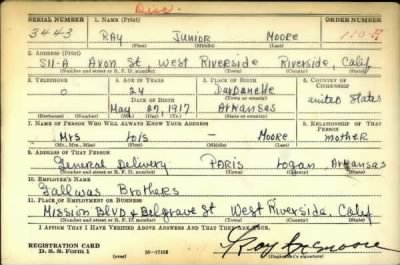 Disc.
SERIAL NUMBER 1. NAME (Print) ORDER NUMBER
3443 RAY JUNIOR MOORE
(First) (Middle) (Last)
2. ADDRESS (Print)
511-A Avon St, West Riverside Riverside, Calif
(Number and street or R. F. D. number) (Town) (County) (State)
3. TELEPHONE 4. AGE IN YEARS 5. PLACE OF BIRTH 6. COUNTRY OF CITIZENSHIP
0 24 Dardanelle
DATE OF BIRTH (Town or county)
May 27, 1917 Arkansas United States
(Exchange) (Number) (Mo.) (Day) (Yr.) (State or country)
7. NAME OF PERSON WHO WILL ALWAYS KNOW YOUR ADDRESS 8. RELATIONSHIP OF THAT PERSON
Mrs Lois — Moore mother
(Mr., Mrs., Miss) (First) (Middle) (Last)
9. ADDRESS OF THAT PERSON
General Delivery PARIS Logan, Arkansas
(Number and street or R. F. D. number) (Town) (County) (State)
10. EMPLOYER'S NAME
Gallwas Brothers
11. PLACE OF EMPLOYMENT OR BUSINESS
Mission Blvd & Belgrave St West Riverside, Calif
(Number and street or R. F. D. number) (Town) (County) (State)
I AFFIRM THAT I HAVE VERIFIED ABOVE ANSWERS AND THAT THEY ARE TRUE.
REGISTRATION CARD
D. S. S. Form 1 16-17105 Ray Jr Moore
(Registrant's signature)